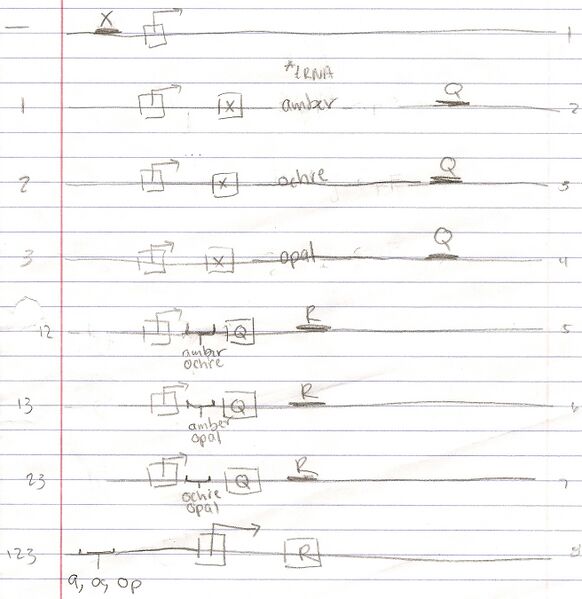 — X 1
*tRNA
1 X amber Q 2
2 X ochre Q 3
3 X opal Q 4
12 Q R 5
amber
ochre
13 Q R 6
amber
opal
23 Q R 7
ochre
opal
123 R 8
a, oc, op